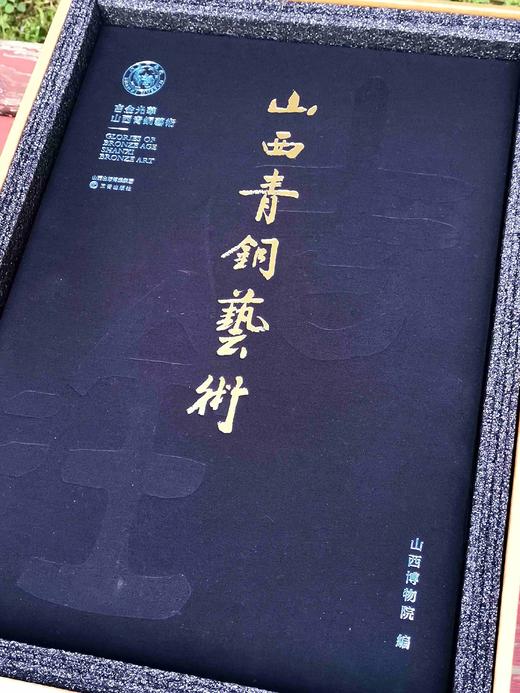 吉金光華
山西青銅藝術
GLORIES OF
BRONZE AGE
SHANXI
BRONZE ART
山西出版傳媒集團
三晋出版社
山西青銅藝術
山西博物院 編